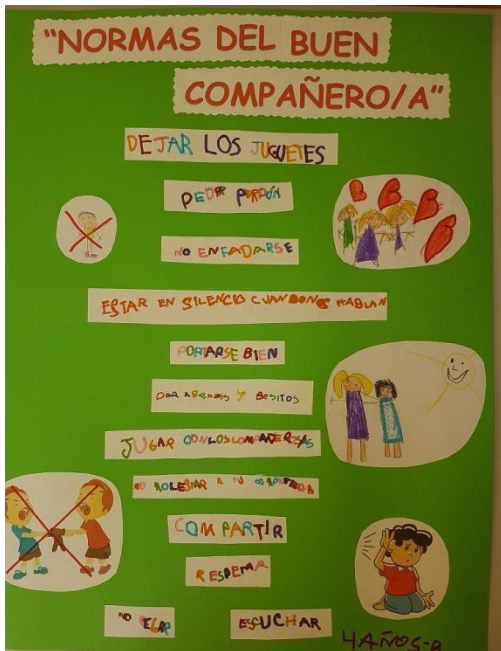 "NORMAS DEL BUEN
COMPAÑERO/A"
DEJAR LOS JUGUETES
PEDIR PERDÓN
NO ENFADARSE
ESTAR EN SILENCIO CUANDO NOS HABLAN
PORTARSE BIEN
DAR ABRAZOS Y BESITOS
JUGAR CON LOS COMPAÑEROS/AS
NO MOLESTAR A TU
COMPARTIR
NO PEGAR ESCUCHAR
4 AÑOS-B